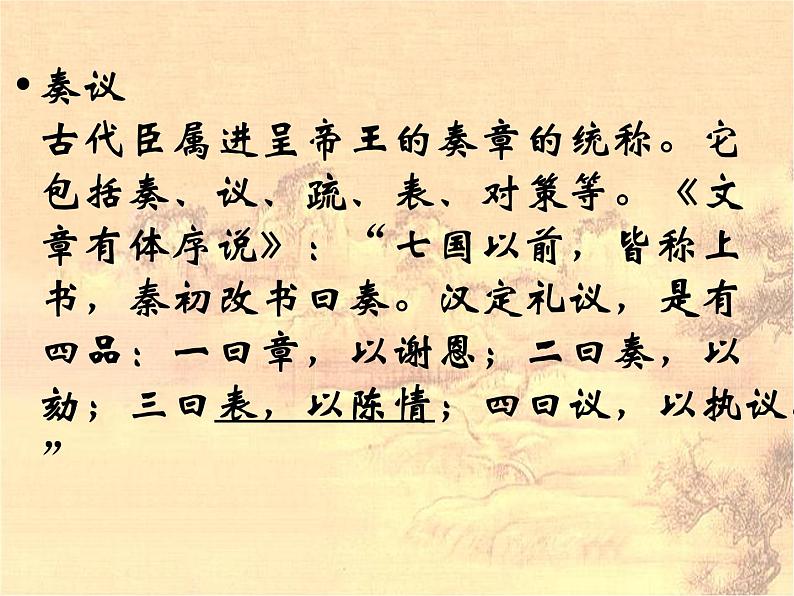 • 奏议
古代臣属进呈帝王的奏章的统称。它
包括奏、议、疏、表、对策等。《文
章有体序说》：“七国以前，皆称上
书，秦初改书曰奏。汉定礼议，是有
四品：一曰章，以谢恩；二曰奏，以
劾；三曰表，以陈情；四曰议，以执议。
”